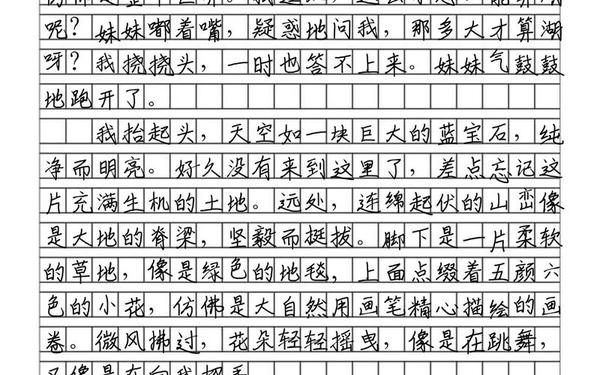 呢？妹妹嘟着嘴，疑惑地问我，那多大才算湖
呀？我挠挠头，一时也答不上来。妹妹气鼓鼓
地跑开了。
我抬起头，天空如一块巨大的蓝宝石，纯
净而明亮。好久没有来到这里了，差点忘记这
片充满生机的土地。远处，连绵起伏的山峦像
是大地的脊梁，坚毅而挺拔。脚下是一片柔软
的草地，像是绿色的地毯，上面点缀着五颜六
色的小花，仿佛是大自然用画笔精心描绘的画
卷。微风拂过，花朵轻轻摇曳，像是在跳舞，